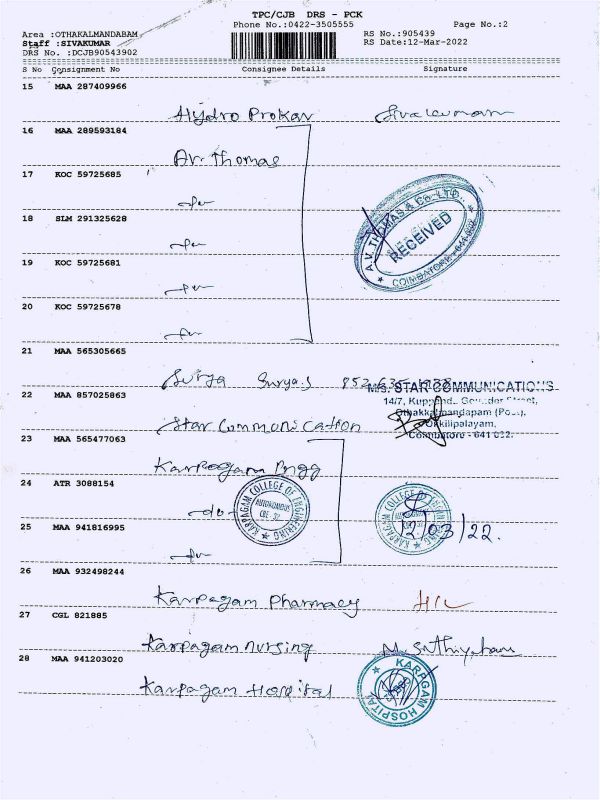 TPC/CJB DRS - PCK
Phone No.:0422-3505555
Page No.:2
Area :OTHAKALMANDABAM
RS No.:905439
Staff :SIVAKUMAR
RS Date:12-Mar-2022
DRS No. :DCJB90543902
S No Consignment No Consignee Details Signature
15 MAA 287409966
Hydro Prokav Sivakumar
16 MAA 289593184
AV. Thomas
17 KOC 59725685
18 SLM 291325628
A.V. THOMAS & Co. LTD.,
RECEIVED
COIMBATORE - 641
19 KOC 59725681
20 KOC 59725678
21 MAA 565305665
Surya Surya.S
M/s. STAR COMMUNICATIONS
22 MAA 857025863
14/7, Street,
Othakkalmandapam
Star Communication
Okkilipalayam,
Coimbatore - 641 032.
23 MAA 565477063
Karpagam Engg
24 ATR 3088154
do
KARPAGAM COLLEGE OF ENGINEERING
AUTONOMOUS
CBE-32
KARPAGAM COLLEGE OF ENGINEERING
12/03/22.
25 MAA 941816995
26 MAA 932498244
Karpagam Pharmacy
27 CGL 821885
Karpagam nursing M. Sathiya
28 MAA 941203020
Karpagam Hospital
KARPAGAM HOSPITAL